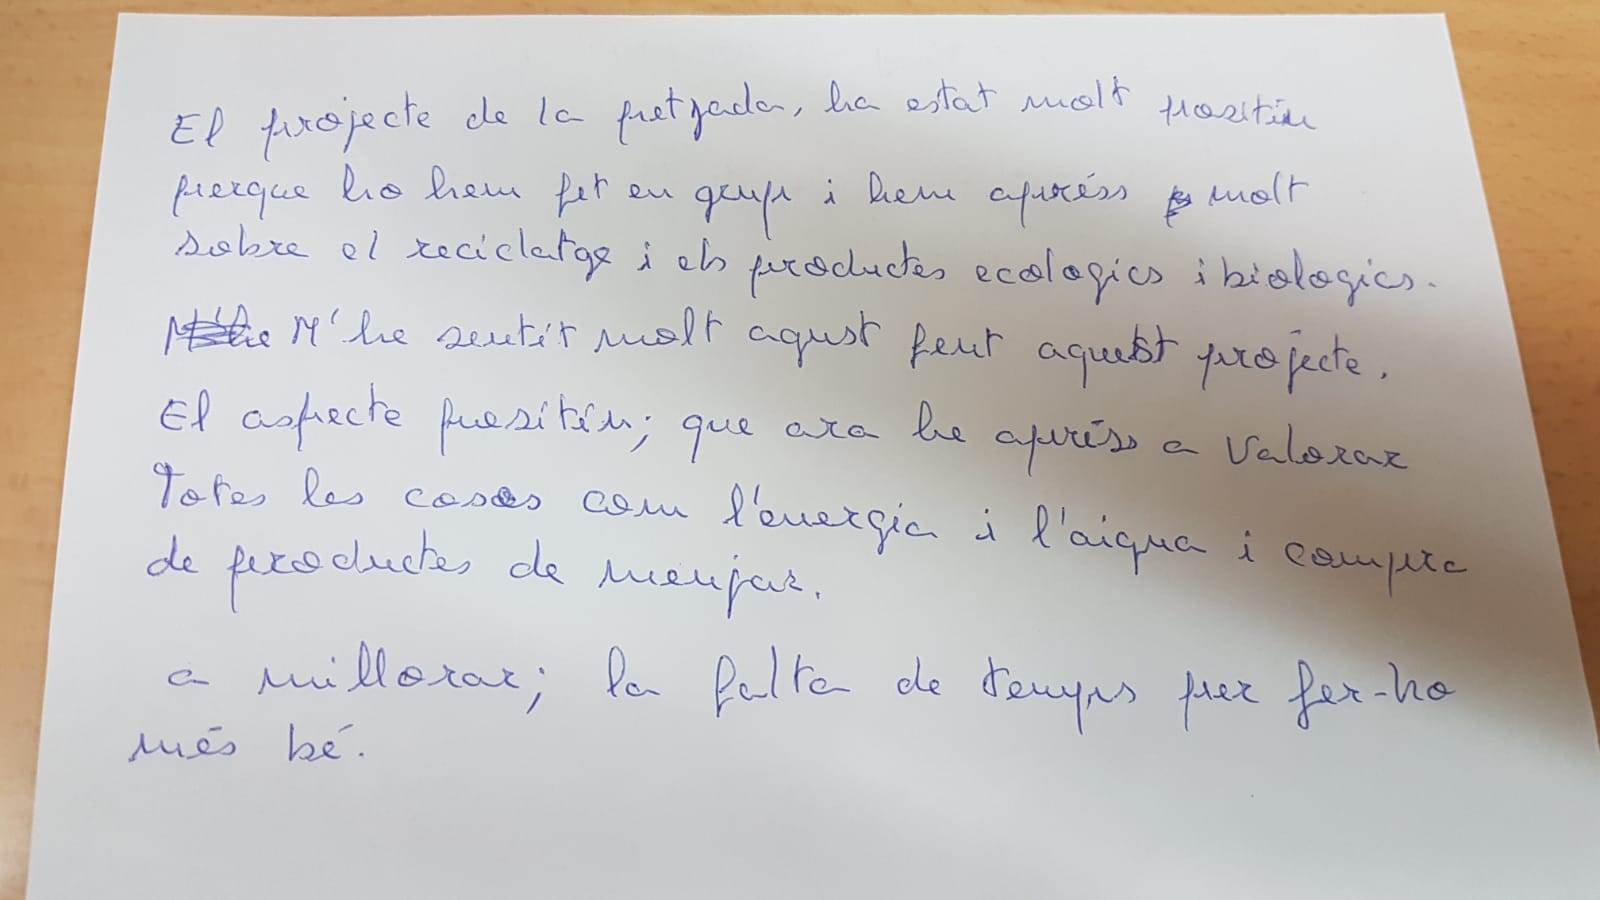 El projecte de la petjada, ha estat molt positiu
perque ho hem fet en grup i hem apréss molt
sobre el reciclatge i els productes ecologics i biologics.
M'he sentit molt agust fent aquest projecte.
El aspecte posítíu; que ara he aprés a valorar
Totes les coses com l'energia i l'aigua i compra
de productes de menjar.
a millorar; la falta de temps per fer-ho
més bé.